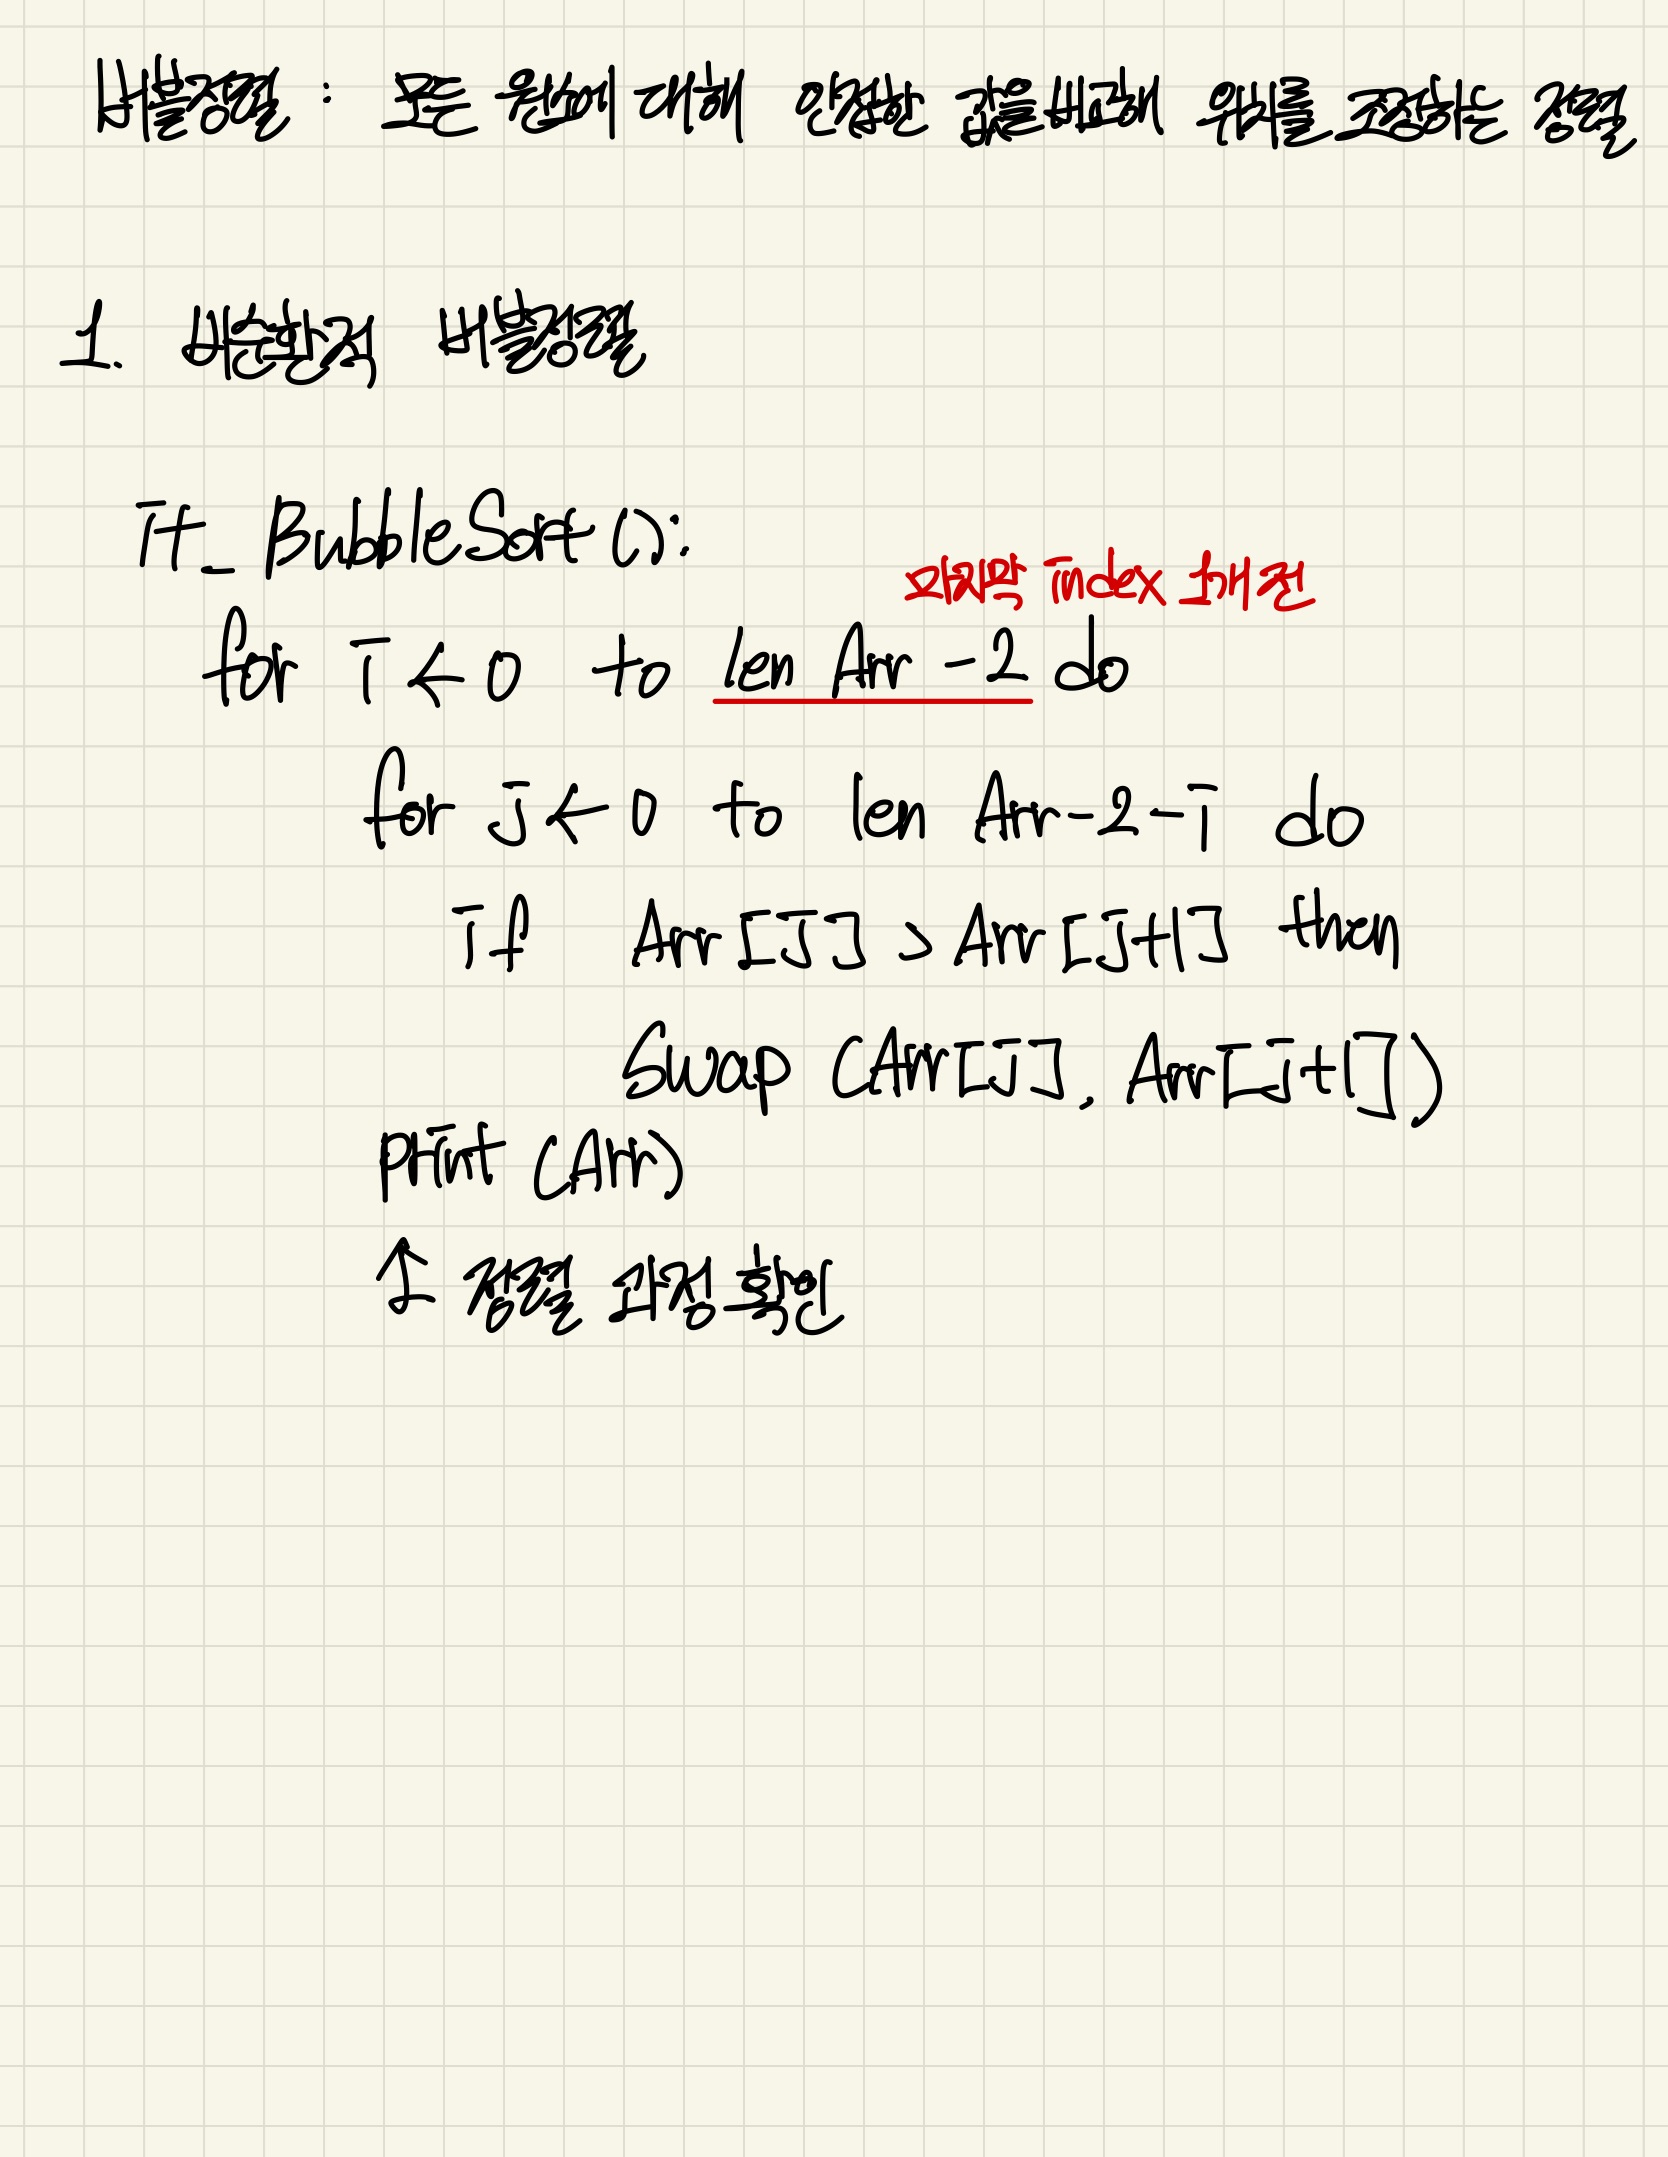 버블정렬 : 모든 원소에 대해 인접한 값을 비교해 위치를 조정하는 정렬
1. 비순환적 버블정렬
It_BubbleSort():
마지막 index 1개 전
for i ← 0 to len Arr -2 do
for j ← 0 to len Arr-2-i do
if Arr[j] > Arr[j+1] then
Swap (Arr[j], Arr[j+1])
print (Arr)
↑ 정렬 과정 확인